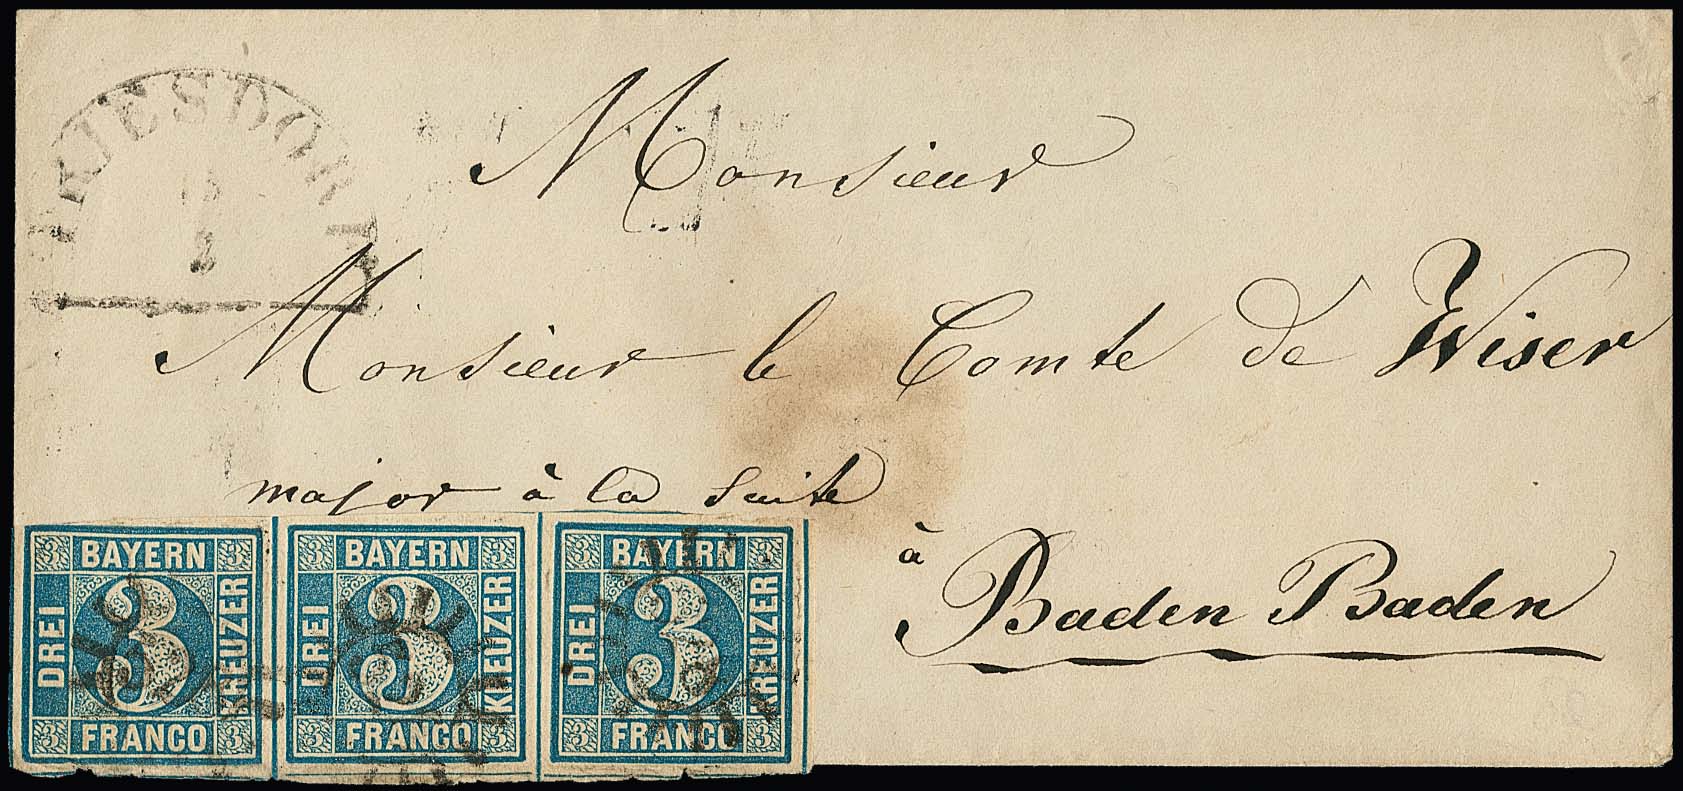 TRIESDORF
12
2
Monsieur
Monsieur le Comte de Wiser
major à la suite
à
Baden Baden
3 BAYERN 3
DREI 3 KREUZER
3 FRANCO 3
3 BAYERN 3
DREI 3 KREUZER
3 FRANCO 3
3 BAYERN 3
DREI 3 KREUZER
3 FRANCO 3